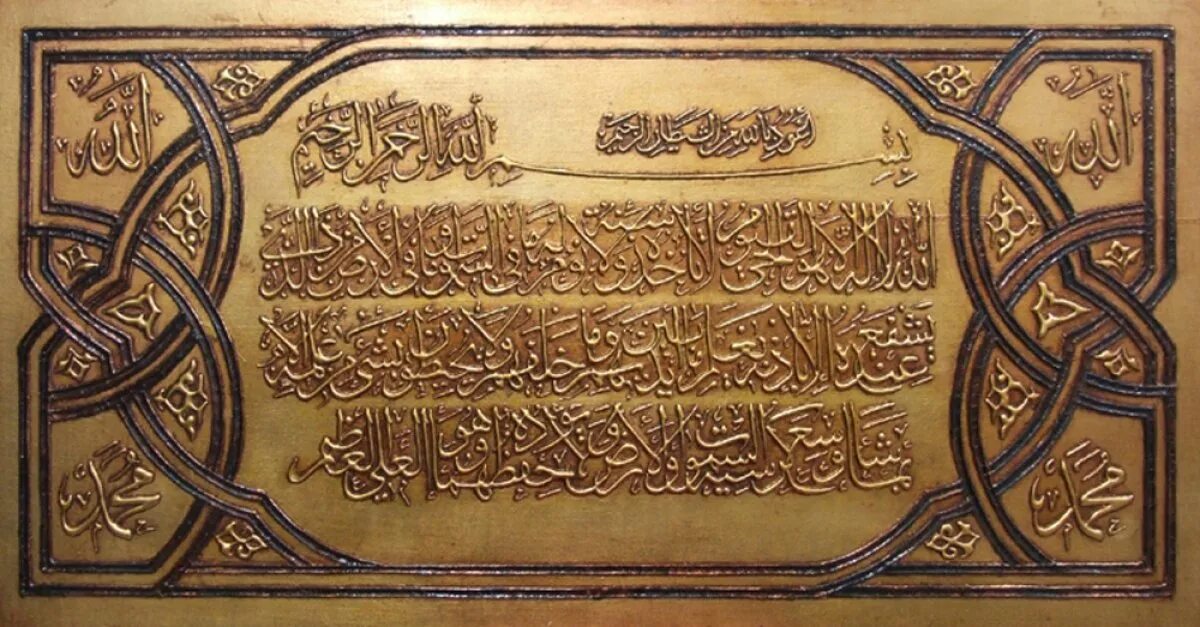 الله
الله
اعوذ بالله من الشيطان الرجيم
بسم الله الرحمن الرحيم
الله لا اله الا هو الحي القيوم لا تأخذه سنة ولا نوم له ما في السموات وما في الارض من ذا الذي
يشفع عنده الا باذنه يعلم ما بين ايديهم وما خلفهم ولا يحيطون بشئ من علمه الا
بما شاء وسع كرسيه السموات والارض ولا يؤده حفظهما وهو العلي العظيم
محمد
محمد